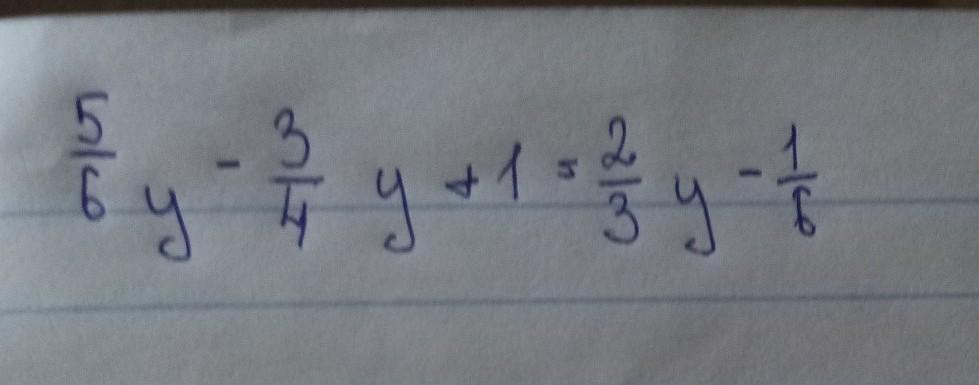 5/6 y - 3/4 y + 1 = 2/3 y - 1/6